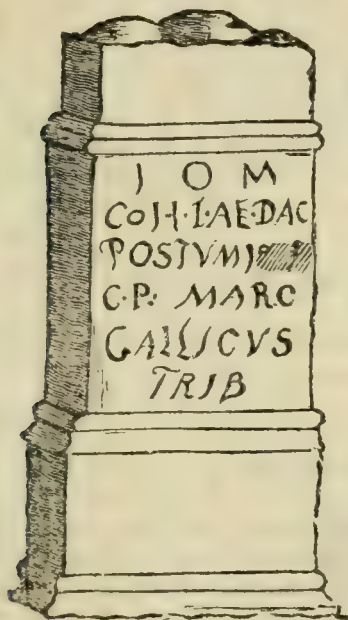 I O M
COH·I·AE·DAC
POSTVMI
C·P· MARC
GALLICVS
TRIB